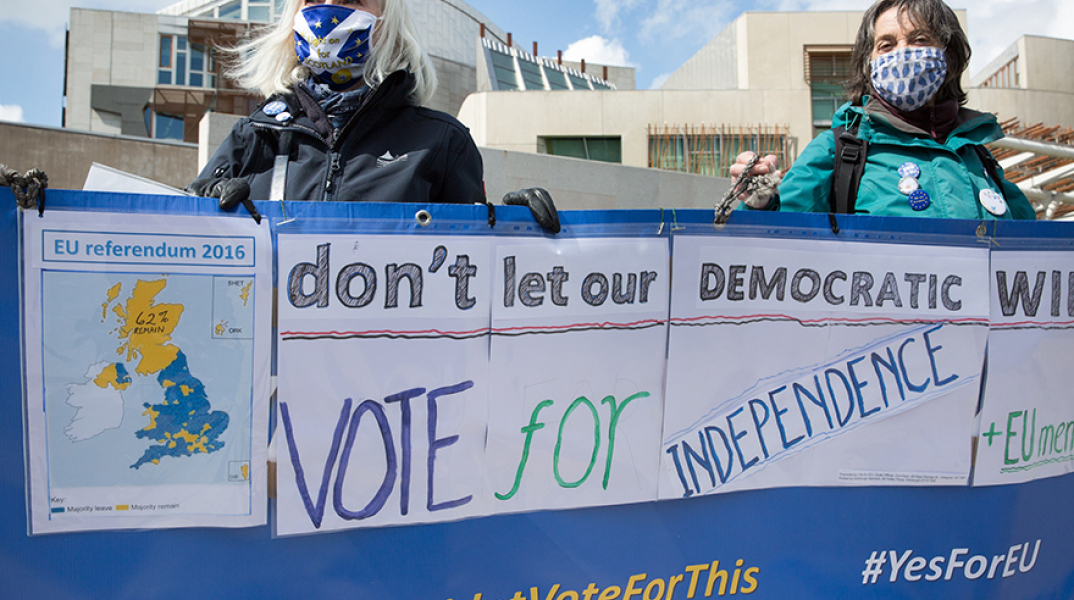 EU referendum 2016
62%
REMAIN
SHET
ORK
Key:
Majority leave
Majority remain
don't let our DEMOCRATIC
VOTE for INDEPENDENCE
+EU
VoteForThis
#YesForEU
for
SCOTLAND